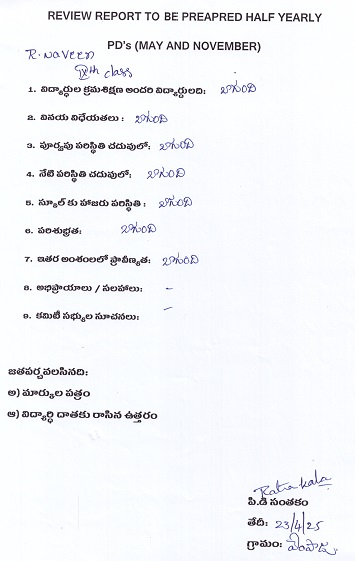 REVIEW REPORT TO BE PREAPRED HALF YEARLY
PD's (MAY AND NOVEMBER)
R. NAVEEN
IXth class
1. విద్యార్థుల క్రమశిక్షణ అందరి విద్యార్థులది: బాగుంది
2. వినయ విధేయతలు : బాగుంది
3. పూర్వపు పరిస్థితి చదువులో: బాగుంది
4. నేటి పరిస్థితి చదువులో: బాగుంది
5. స్కూల్ కు హాజరు పరిస్థితి : బాగుంది
6. పరిశుభ్రత: బాగుంది
7. ఇతర అంశంలలో ప్రావీణ్యత: బాగుంది
8. అభిప్రాయాలు / సలహాలు: –
9. కమిటీ సభ్యుల సూచనలు: –
జతపర్చవలసినది:
అ) మార్కుల పత్రం
ఆ) విద్యార్థి దాతకు రాసిన ఉత్తరం
Ratna kala
పి.డి సంతకం
తేది: 23/4/25
గ్రామం: